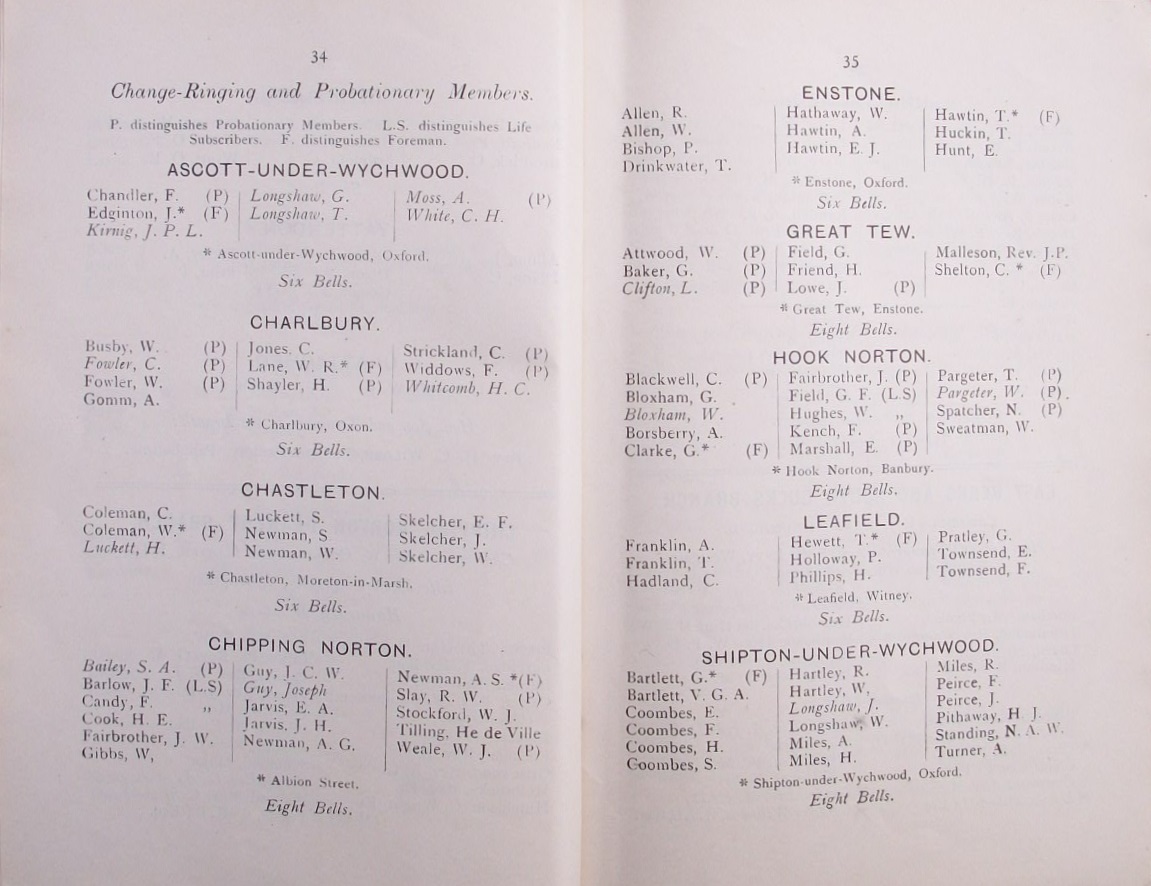 34
Change-Ringing and Probationary Members.
P. distinguishes Probationary Members. L.S. distinguishes Life
Subscribers. F. distinguishes Foreman.
ASCOTT-UNDER-WYCHWOOD.
Chandler, F. (P)
Edginton, J.* (F)
Kirnig, J. P. L.
Longshaw, G.
Longshaw, T.
Moss, A. (P)
White, C. H.
* Ascott-under-Wychwood, Oxford.
Six Bells.
CHARLBURY.
Busby, W. (P)
Fowler, C. (P)
Fowler, W. (P)
Gomm, A.
Jones, C.
Lane, W. R.* (F)
Shayler, H. (P)
Strickland, C. (P)
Widdows, F. (P)
Whitcomb, H. C.
* Charlbury, Oxon.
Six Bells.
CHASTLETON.
Coleman, C.
Coleman, W.* (F)
Luckett, H.
Luckett, S.
Newman, S
Newman, W.
Skelcher, E. F.
Skelcher, J.
Skelcher, W.
* Chastleton, Moreton-in-Marsh.
Six Bells.
CHIPPING NORTON.
Bailey, S. A. (P)
Barlow, J. F. (L.S)
Candy, F. „
Cook, H. E.
Fairbrother, J. W.
Gibbs, W,
Guy, J. C. W.
Guy, Joseph
Jarvis, E. A.
Jarvis. J. H.
Newman, A. G.
Newman, A. S. *(F)
Slay, R. W. (P)
Stockford, W. J.
Tilling, He de Ville
Weale, W. J. (P)
* Albion Street.
Eight Bells.
35
ENSTONE.
Allen, R.
Allen, W.
Bishop, P.
Drinkwater, T.
Hathaway, W.
Hawtin, A.
Hawtin, E. J.
Hawtin, T.* (F)
Huckin, T.
Hunt, E.
* Enstone, Oxford.
Six Bells.
GREAT TEW.
Attwood, W. (P)
Baker, G. (P)
Clifton, L. (P)
Field, G.
Friend, H.
Lowe, J. (P)
Malleson, Rev. J.P.
Shelton, C. * (F)
* Great Tew, Enstone.
Eight Bells.
HOOK NORTON.
Blackwell, C. (P)
Bloxham, G.
Bloxham, W.
Borsberry, A.
Clarke, G.* (F)
Fairbrother, J. (P)
Field, G. F. (L.S)
Hughes, W. „
Kench, F. (P)
Marshall, E. (P)
Pargeter, T. (P)
Pargeter, W. (P)
Spatcher, N. (P)
Sweatman, W.
* Hook Norton, Banbury.
Eight Bells.
LEAFIELD.
Franklin, A.
Franklin, T.
Hadland, C.
Hewett, T.* (F)
Holloway, P.
Phillips, H.
Pratley, G.
Townsend, E.
Townsend, F.
* Leafield, Witney.
Six Bells.
SHIPTON-UNDER-WYCHWOOD.
Bartlett, G.* (F)
Bartlett, V. G. A.
Coombes, E.
Coombes, F.
Coombes, H.
Coombes, S.
Hartley, R.
Hartley, W,
Longshaw, J.
Longshaw, W.
Miles, A.
Miles, H.
Miles, R.
Peirce, F.
Peirce, J.
Pithaway, H J.
Standing, N. A. W.
Turner, A.
* Shipton-under-Wychwood, Oxford.
Eight Bells.